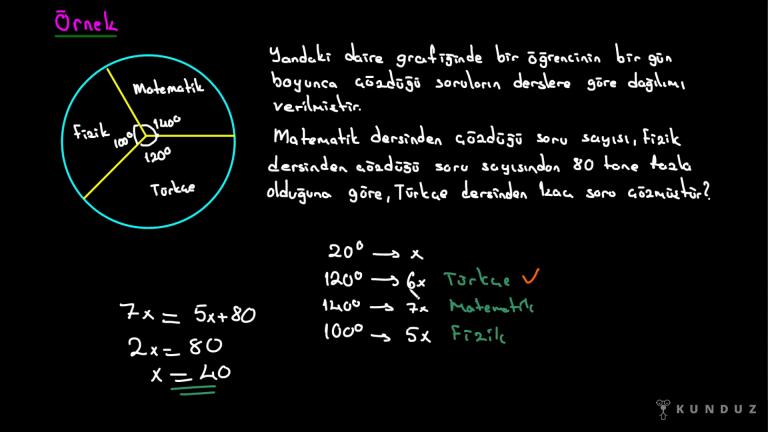 Örnek
Matematik
Fizik
100°
140°
120°
Türkçe
Yandaki daire grafiğinde bir öğrencinin bir gün
boyunca çözdüğü soruların derslere göre dağılımı
verilmiştir.
Matematik dersinden çözdüğü soru sayısı, fizik
dersinden çözdüğü soru sayısından 80 tane fazla
olduğuna göre, Türkçe dersinden kaç soru çözmüştür?
20° → x
120° → 6x Türkçe ✓
140° → 7x Matematik
100° → 5x Fizik
7x = 5x+80
2x = 80
x = 40
KUNDUZ